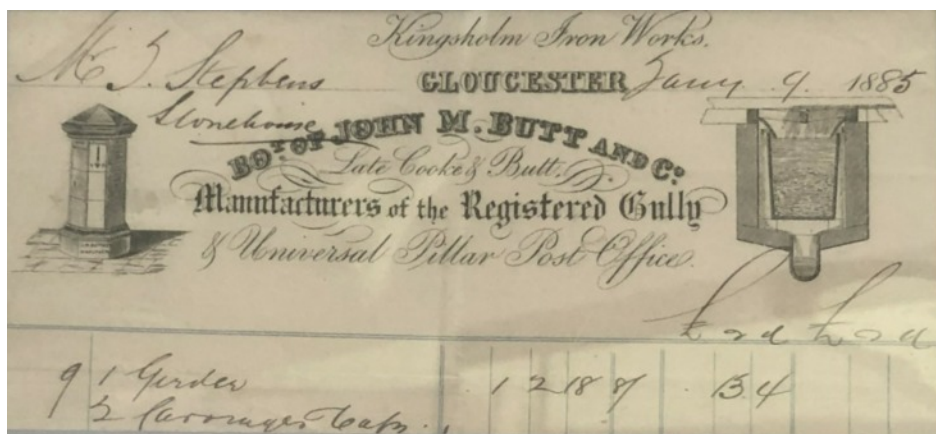 Kingsholm Iron Works.
Mr J. Stephens
GLOUCESTER Jany. 9. 1885
Stonehouse
BOT. OF JOHN M. BUTT AND CO.
Late Cooke & Butt.
Manufacturers of the Registered Gully
& Universal Pillar Post Office.
£ s d £ s d
9 1 Girder 1 2 18 8 13 4
2 Carriages